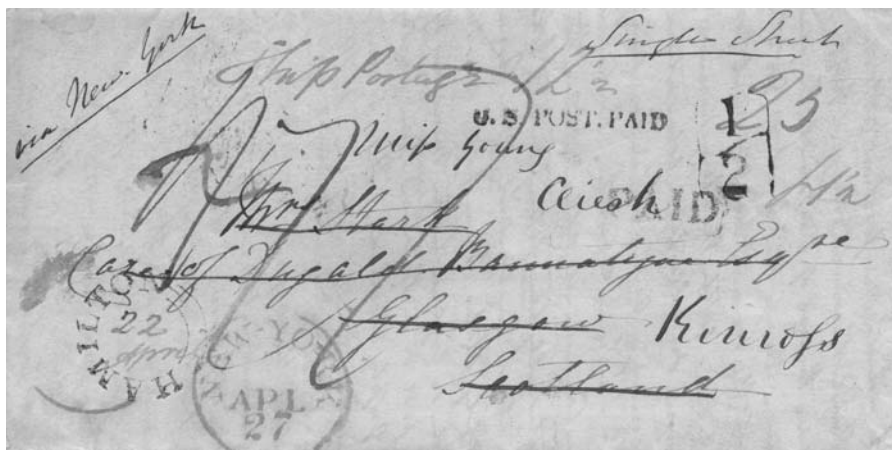 via New York
Single Sheet
Ship Postage
25
U.S. POST. PAID
1
2
PAID
Miss Young
Mrs Stark
Care of Dugald Bannatyne Esqre
Glasgow
Kinross
Scotland
HAMILTON
22
NEW-YORK
APL
27